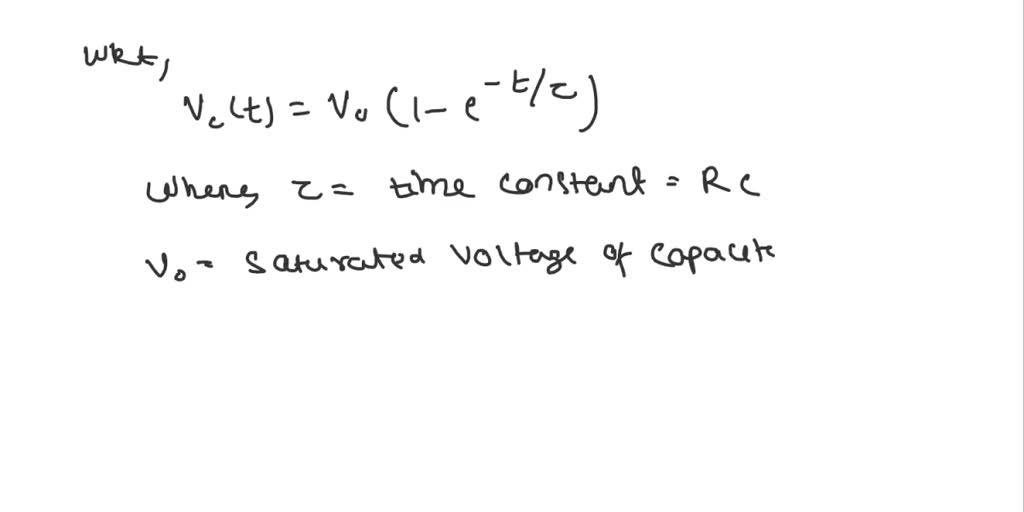 Wkt,
Vc(t) = V0 (1 - e^-t/τ)
Where, τ = time constant = RC
V0 = Saturated Voltage of Capacite